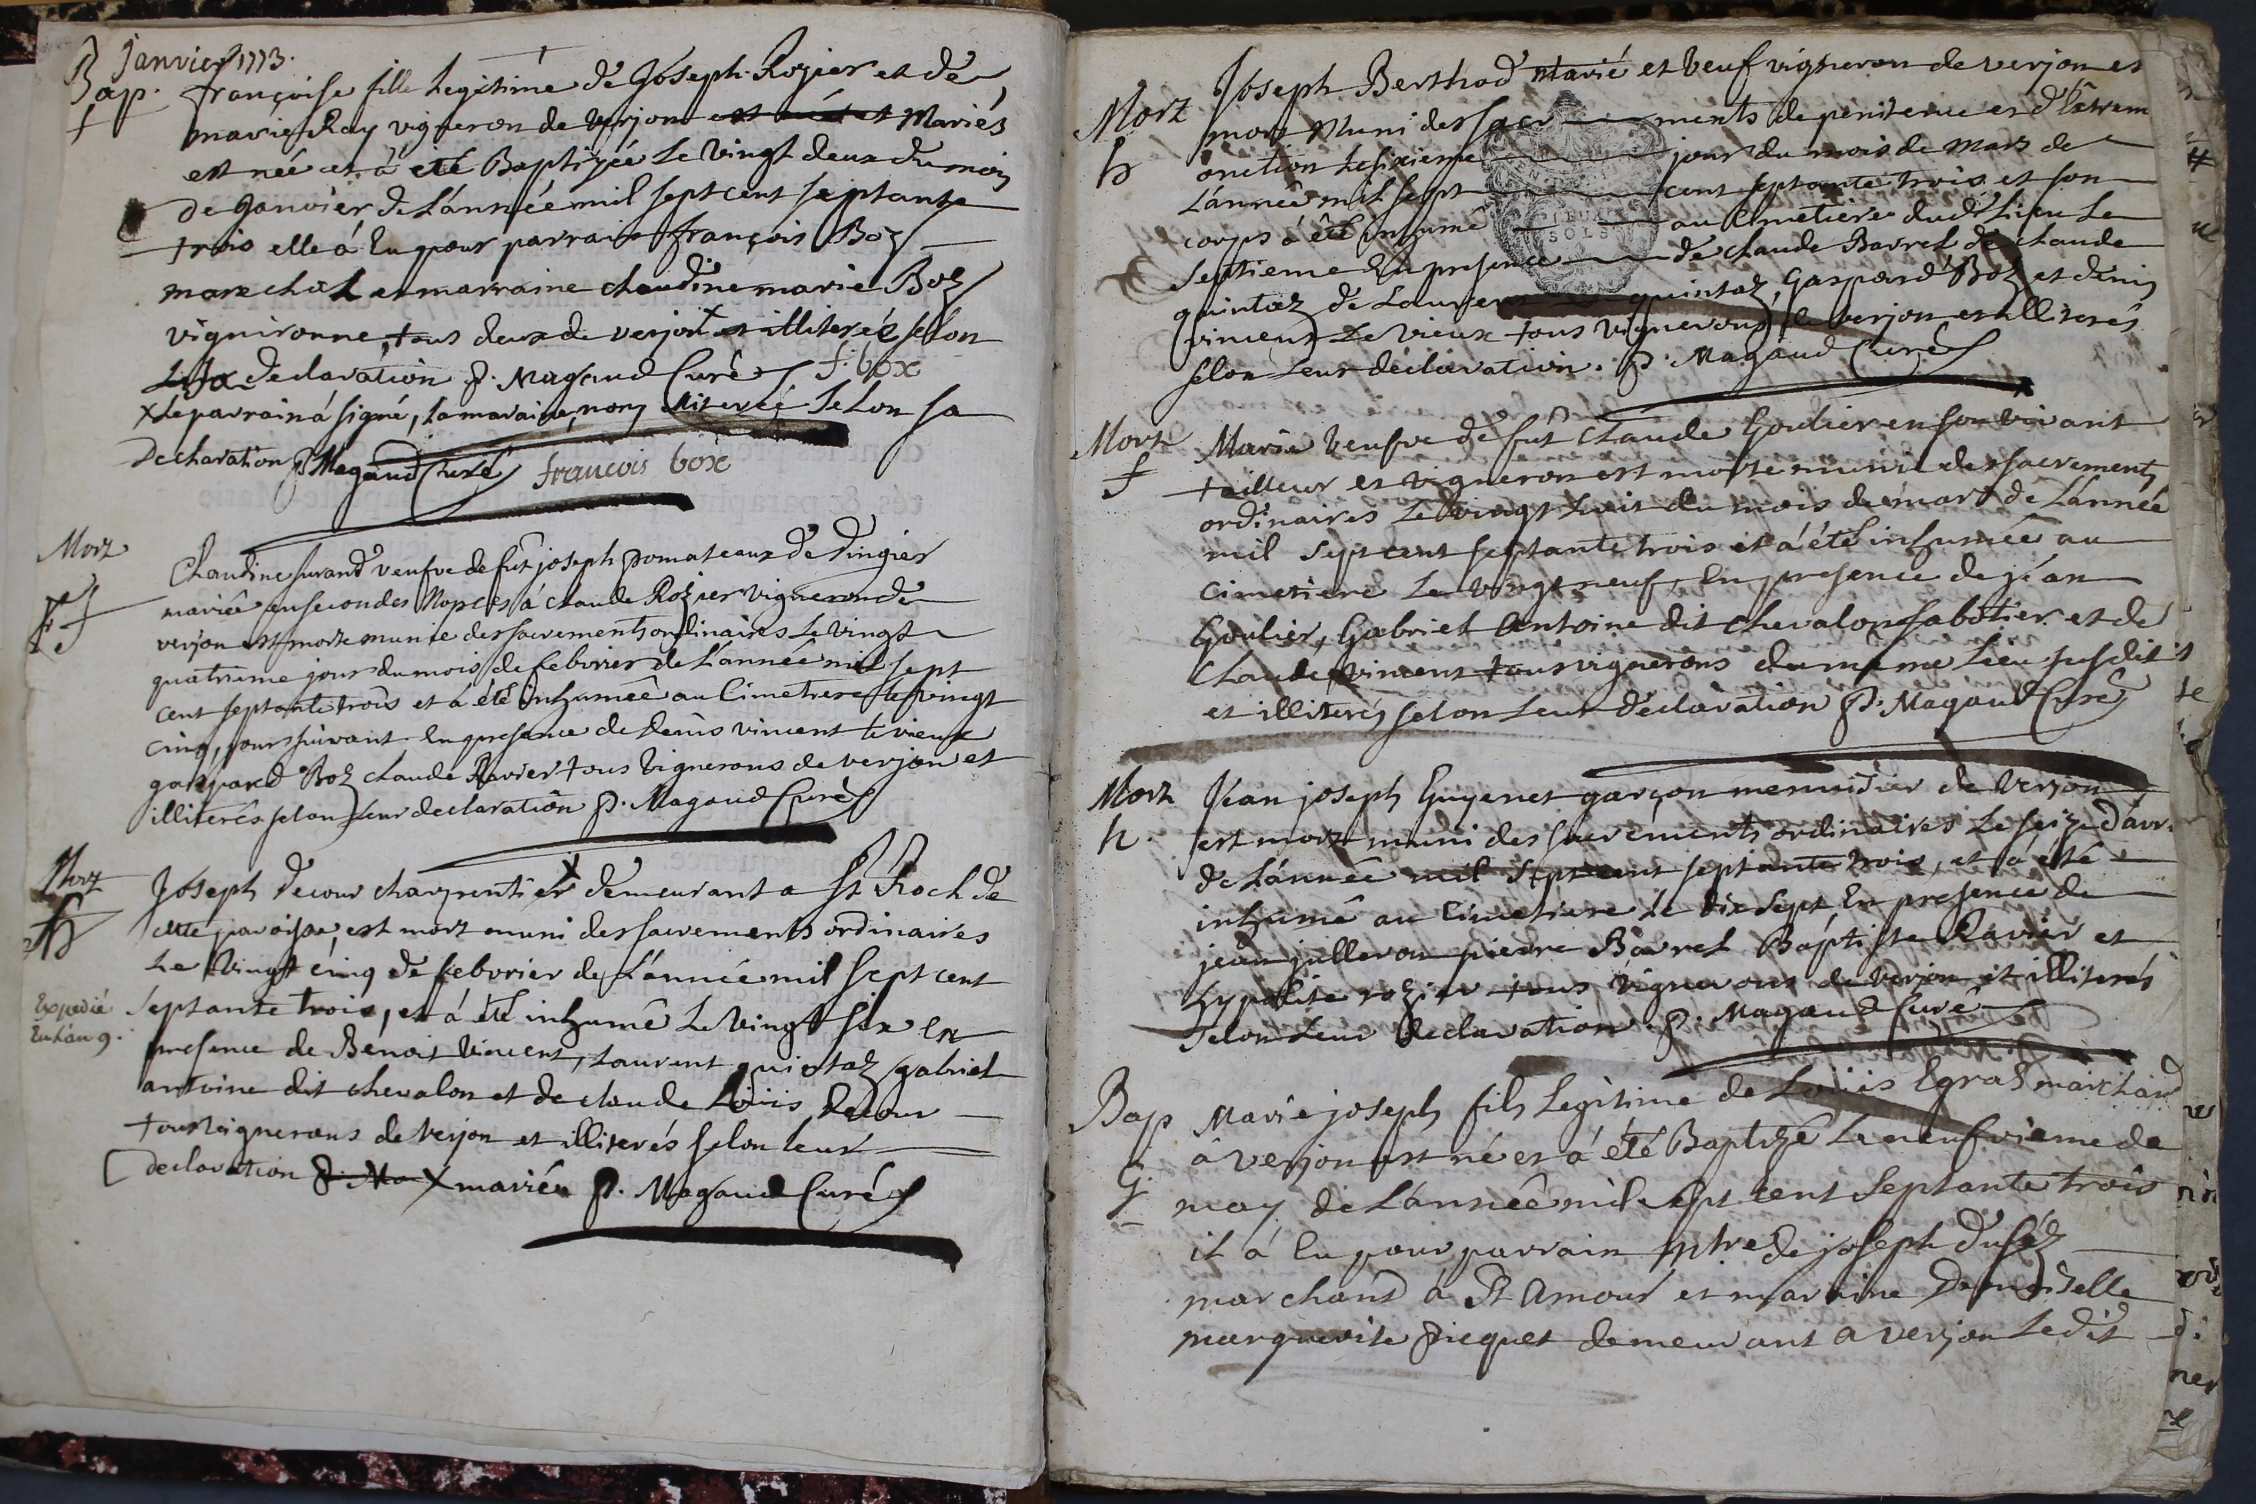 janvier 1773.
Bap. françoise fille Legitime de Joseph Rozier et de
f
marie Ray vigneron de verjon Mariés
est née et á eté Baptizée Le Vingt deux du mois
de Janvier de L'année mil sept cent septante
trois elle á Eu pour parrain françois Boz
marechal et marraine claudine marie Boz
vigneronne, tous deux de verjon et illiterée selon
declaration P. Magaud Curé f. box
x Le parrain á signé, la maraine, non, illiterée selon sa
Declaration P. Magaud Curé francois box
Mort
f
Claudine Surand veufve de fût joseph pomateaux de Dingier
mariée en secondes Nopces á claude Rozier vigneron de
verjon est morte munie des sacrements ordinaires Le vingt
quatrieme jour du mois de febvrier de L'année mil sept
cent septante trois et á été inhumée au Cimetiere le vingt
cinq, jour suivant. En presence de denis vincent le vieux
gaspard Boz claude Ravier tous vignerons de verjon et
illiterés selon Leur declaration P. Magaud Curé
Mort
h
Joseph Decour charpentier x demeurant a St Roch de
cette paroisse, est mort muni des sacrements ordinaires
Le Vingt cinq de febvrier de L'année mil sept cent
Expedié
En L'an 9.
septante trois, et á été inhumé Le Vingt six en
presence de Benoit Vincent, Laurent quintaz, gabriel
antoine dit chevalon et de claude Loüis Decour
tous vignerons de verjon et illiterés selon leur
declaration P. Ma x marié P. Magaud Curé
Mort
h
Joseph Berthod marié et veuf vigneron de verjon est
mort Muni des sacrements de penitence et d'Extrem
onction Le sixieme jour du mois de mars de
L'année mil sept cent septante trois et son
corps á été inhumé au Cimetiere dudt Lieu Le
septieme En presence de claude Barrel de claude
quintaz de Laurent quintaz, Gaspard Boz et denis
vincent Le vieux tous vignerons de verjon et illiterés
selon Leur déclaration. P. Magaud Curé
Mort
f
Marie Veufve de fût Claude Goulier en son vivant
tailleur et vigneron est morte munie des sacrements
ordinaires Le vingt huit du mois de mars de L'année
mil sept cent septante trois et á été inhumée au
cimetiere Le vingt neuf, En presence de jean
Goulier, Gabriel Antoine dit chevalon sabotier et de
Claude Vincent tous vignerons du même Lieu susdit
et illiterés selon Leur déclaration P. Magaud Curé
Mort
h.
Jean joseph Guyenet garçon menuisier de Verjon
est mort muni des sacrements ordinaires Le seize d'avr.
de L'année mil sept cent septante trois, et á eté
inhumé au Cimetiere Le dix sept En presence de
jean julleron pierre Barrel Baptiste Ravier et
hypolite rozier tous vignerons de verjon et illiterés
selon Leur declaration P. Magaud Curé
Bap
G.
Marie joseph fils Legitime de Loüis Egraz marchand
á verjon est né et á été Baptizé Le neufvieme de
may de L'année mil sept cent septante trois
il á Eu pour parrain joseph
marchand á St Amour et maraine Demoiselle
marguerite Picquet demeurant a verjon Ledit